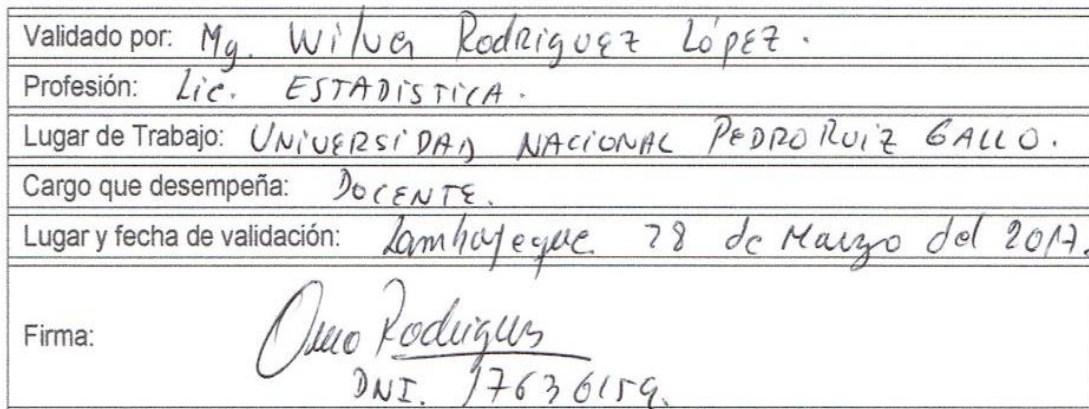 Validado por: Mg. Wilver Rodriguez López.
Profesión: Lic. ESTADISTICA.
Lugar de Trabajo: UNIVERSIDAD NACIONAL PEDRO RUIZ GALLO.
Cargo que desempeña: DOCENTE.
Lugar y fecha de validación: Lambayeque 28 de Marzo del 2017.
Firma: Rodriguez
DNI. 17636159.